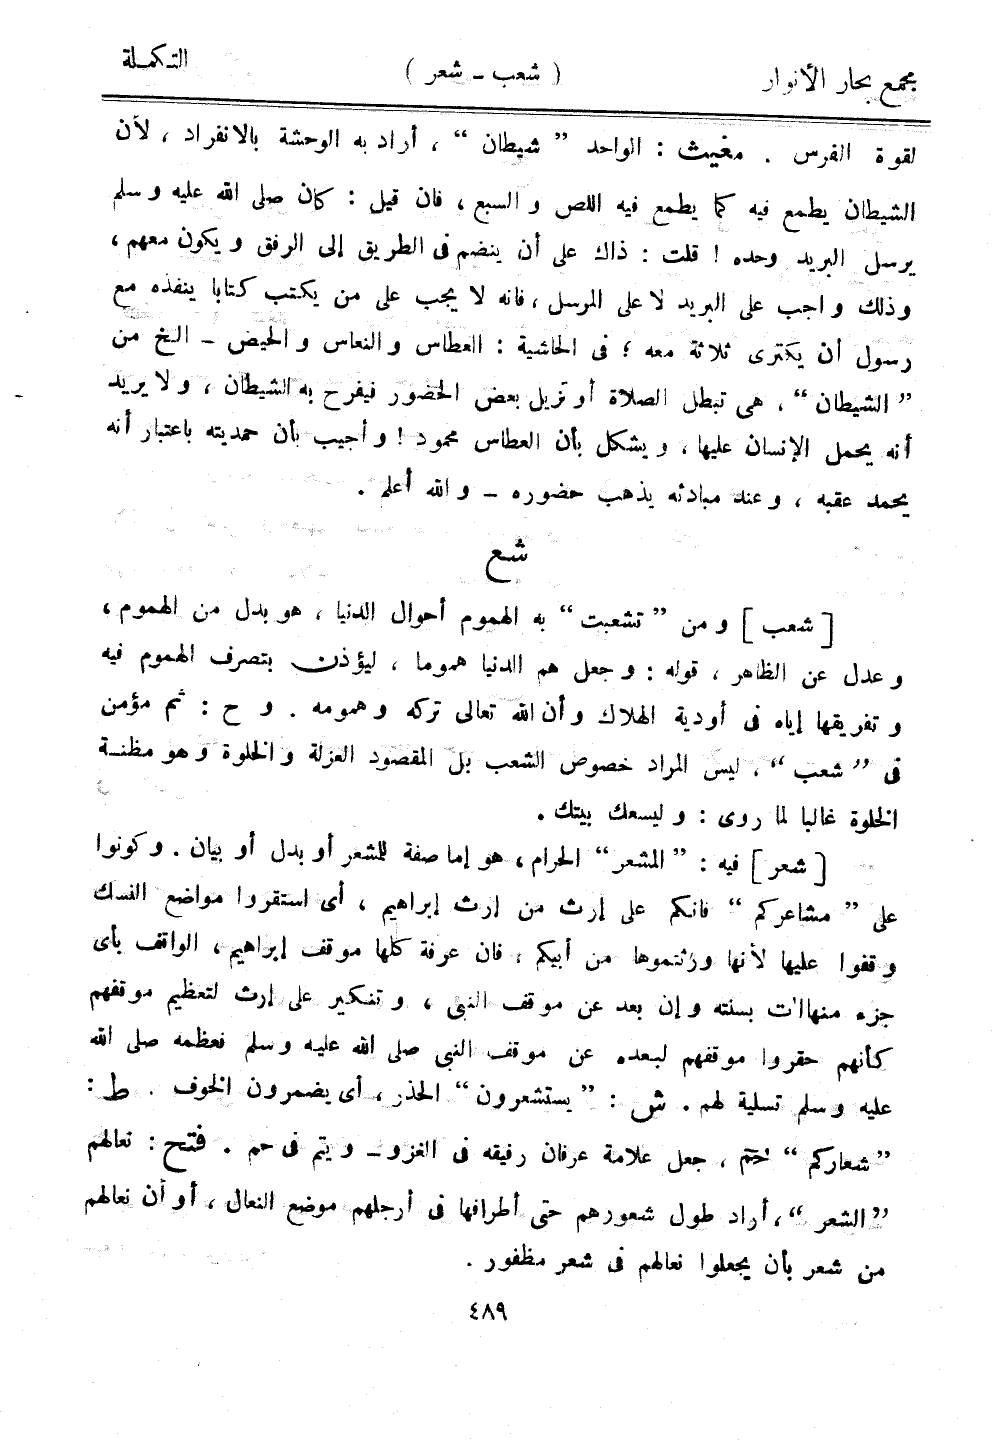 مجمع بحار الأنوار ( شعب ـ شعر ) التـكملة
لقوة الفرس . مغيث : الواحد ”شيطان“ ، أراد به الوحشة بالانفراد ، لأن
الشيطان يطمع فيه كما يطمع فيه اللص والسبع ، فان قيل : كان صلى الله عليه وسلم
يرسل البريد وحده ! قلت : ذاك على أن ينضم فى الطريق إلى الرفق ويكون معهم ،
وذلك واجب على البريد لا على المرسل ، فانه لا يجب على من يكتب كتابا ينفذه مع
رسول أن يكترى ثلاثة معه ؛ فى الحاشية : العطاس والنعاس والحيض ـ الخ من
”الشيطان“ ، هى تبطل الصلاة أو تزيل بعض الحضور فيفرح به الشيطان ، ولا يريد
أنه يحمل الإنسان عليها ، ويشكل بأن العطاس محمود ! وأجيب بأن حمديته باعتبار أنه
يحمد عقبه ، وعند مبادئه يذهب حضوره ـ والله أعلم .
شع
[ شعب ] ومن ”تشعبت“ به الهموم أحوال الدنيا ، هو بدل من الهموم ،
وعدل عن الظاهر ، قوله : وجعل هم الدنيا هموما ، ليؤذن بتصرف الهموم فيه
وتفريقها إياه فى أودية الهلاك وأن الله تعالى تركه وهمومه . و ح : ثم مؤمن
فى ”شعب“ ، ليس المراد خصوص الشعب بل المقصود العزلة والخلوة وهو مظنـة
الخلوة غالبا لما روى : وليسعك بيتك .
[ شعر ] فيه : ”المشعر“ الحرام ، هو إما صفة للمشعر أو بدل أو بيان . وكونوا
على ”مشاعركم“ فانكم على إرث من إرث إبراهيم ، أى استقروا مواضع النسك
وقفوا عليها لأنها ورثتموها من أبيكم ، فان عرفة كلها موقف إبراهيم ، الواقف بأى
جزء منها اٰت بسنته وإن بعد عن موقف النبى ، وتنكير على إرث لتعظيم موقفهم
كأنهم حقروا موقفهم لبعده عن موقف النبى صلى الله عليه وسلم فعظمه صلى الله
عليه وسلم تسلية لهم . ش : ”يستشعرون“ الحذر ، أى يضمرون الخوف . ط :
”شعاركم“ حٰمٓ ، جعل علامة عرفان رفيقه فى الغزو ـ ويتم فى حم . فتح : نعالهم
”الشعر“ ، أراد طول شعورهم حتى أطرافها فى أرجلهم موضع النعال ، أو أن نعالهم
من شعر بأن يجعلوا نعالهم فى شعر مظفور .
٤٨٩